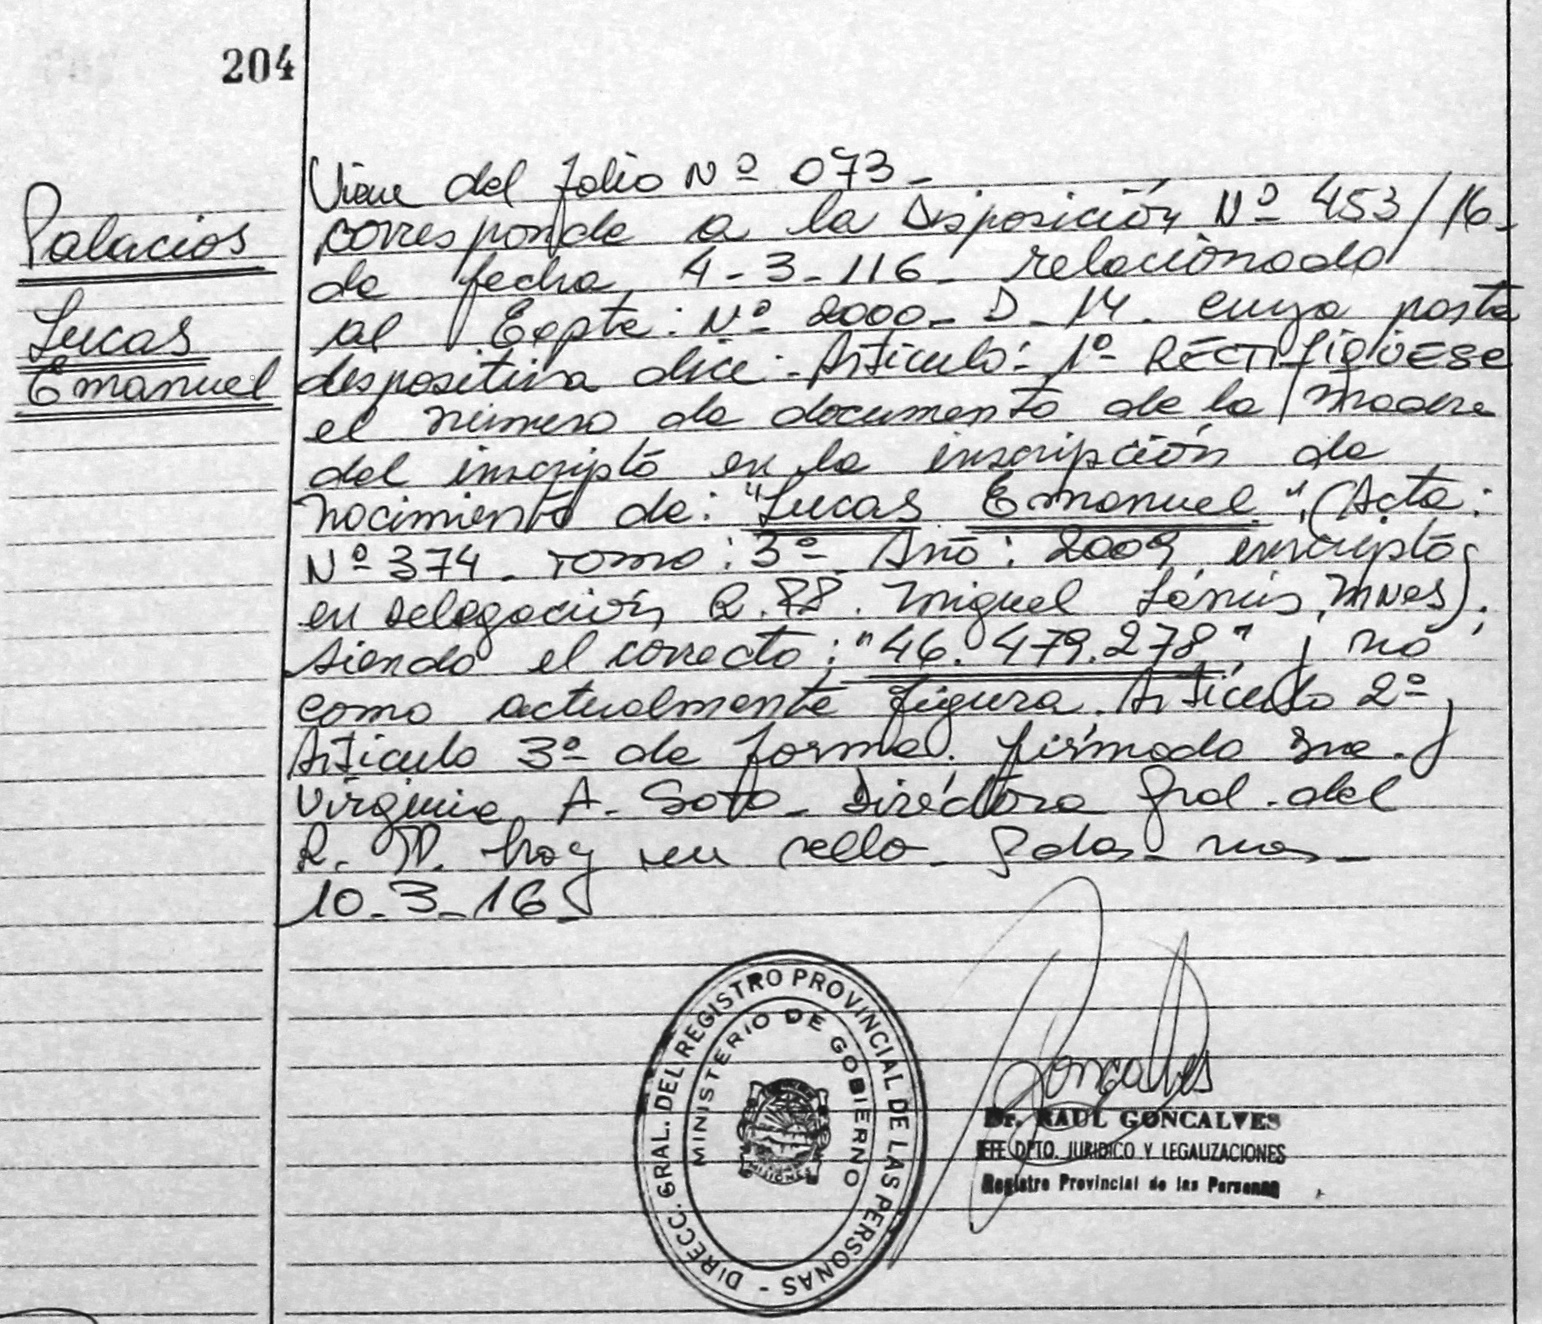 204
Palacios
Lucas
Emanuel
Viene del folio Nº 073-
corresponde a la Disposición Nº 453/16-
de fecha 4-3-116- relacionado
al Expte: Nº 2000- D- 14- cuya parte
dispositiva dice:- Artículo: 1º- RECTIFIQUESE
el número de documento de la madre
del inscripto en la inscripción de
nacimiento de: "Lucas Emanuel" (Acta:
Nº 374- Tomo: 3º- Año: 2009 inscripto
en Delegación Miguel Lanús, Mnes).
siendo el correcto: "46.479.278" y no
como actualmente figura. Artículo 2º y
Artículo 3º de forma. firmado Sra.
Virginia A. Soto- Directora Gral. del
R. P. hay un sello- Pdas- Mnes-
10-3-16-
DIRECC. GRAL. DEL REGISTRO PROVINCIAL DE LAS PERSONAS -
MINISTERIO DE GOBIERNO
MISIONES
Goncalves
Dr. RAUL GONCALVES
JEFE DPTO. JURIDICO Y LEGALIZACIONES
Registro Provincial de las Personas